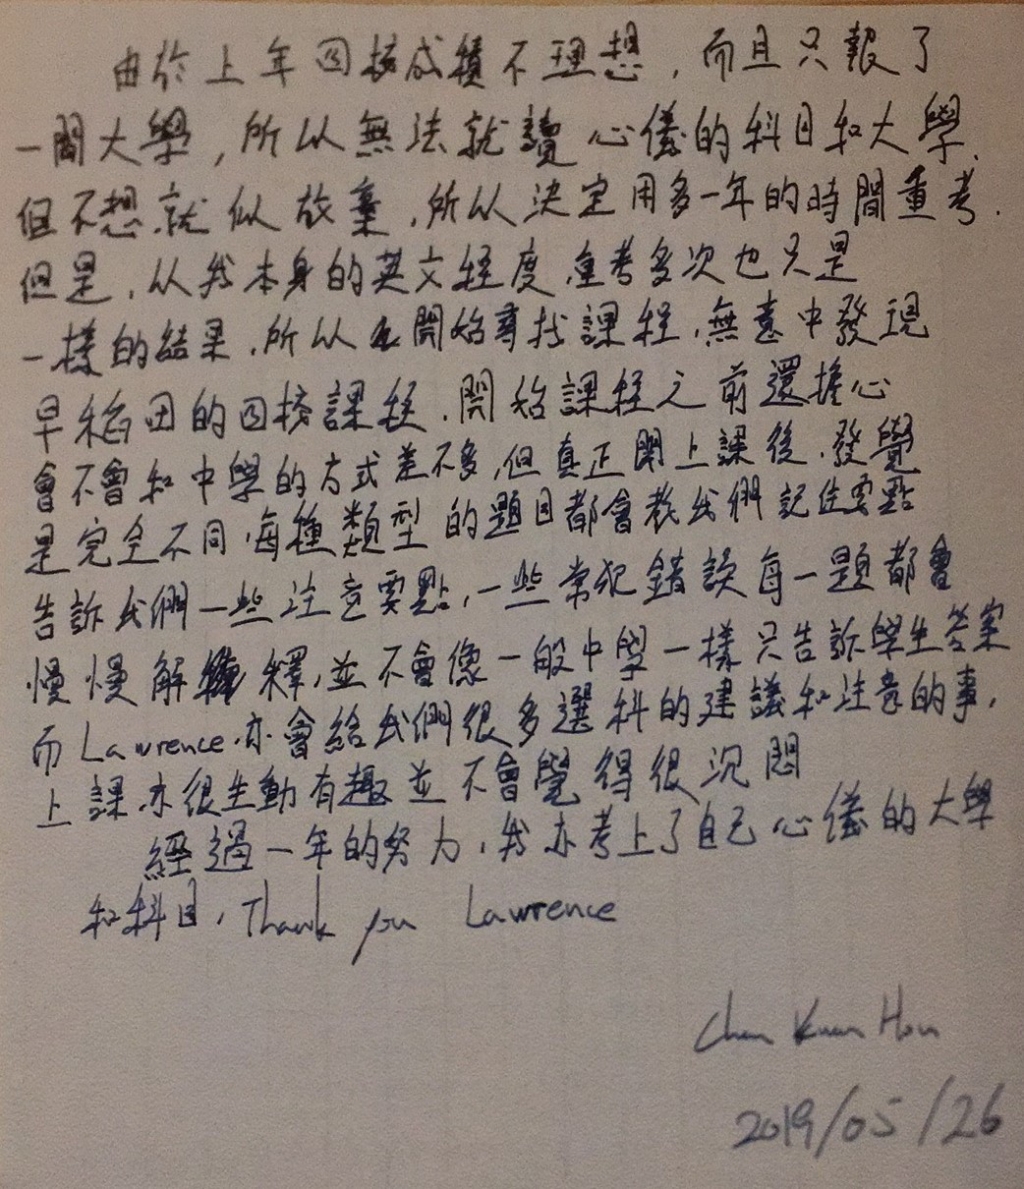 由於上年四校成績不理想，而且只報了
一間大學，所以無法就讀心儀的科目和大學.
但不想就似放棄，所以決定用多一年的時間重考.
但是，以我本身的英文程度，重考多次也只是
一樣的結果，所以開始尋找課程，無意中發現
早稻田的四校課程，開始課程之前還擔心
會不會和中學的方式差不多，但真正開上課後，發覺
是完全不同，每種類型的題目都會教我們記住要點
告訴我們一些注意要點，一些常犯錯誤每一題都會
慢慢解釋，並不會像一般中學一樣只告訴學生答案
而Lawrence亦會給我們很多選科的建議和注意的事，
上課亦很生動有趣並不會覺得很沉悶
經過一年的努力，我亦考上了自己心儀的大學
和科目，Thank you Lawrence
2019/05/26